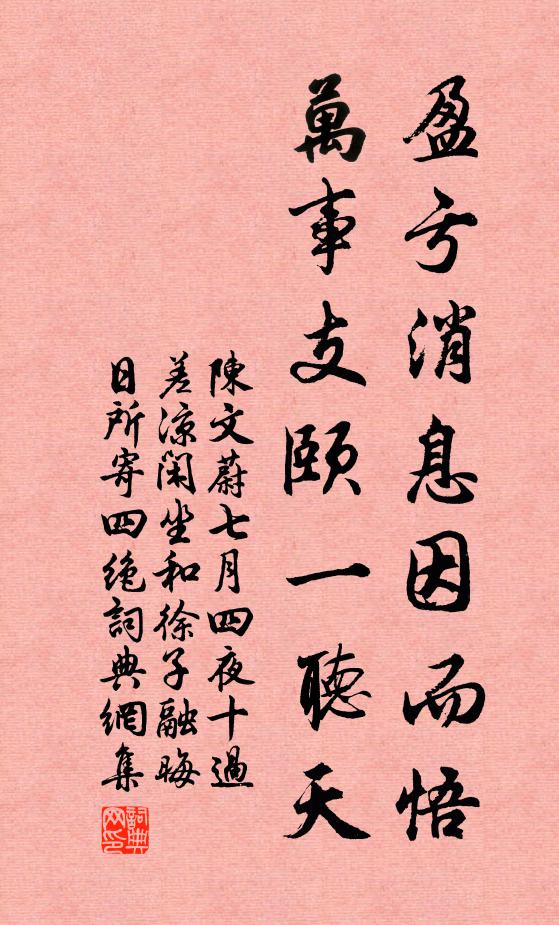 盈亏消息因而悟
萬事支頤一聽天
陳文蔚七月四夜十過
差凉閑坐和徐子融晦
日所寄四絶詞典網集
詞典网印